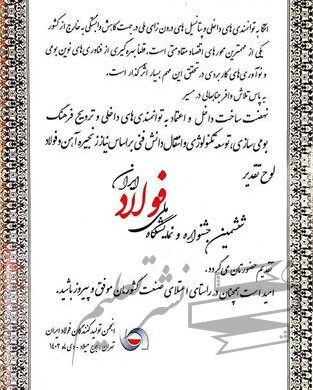 اتکا به توانمندی های داخلی و پتانسیل های درون زای ملی در جهت کاهش وابستگی به خارج از کشور
یکی از مهمترین محورهای اقتصاد مقاومتی است. قطعاً بهره گیری از فناوری های نوین بومی
و نوآوری های کاربردی در تحقق این مهم بسیار اثرگذار است.
به پاس تلاش وافر جنابعالی در مسیر
نهضت ساخت داخل و اعتماد به توانمندی های داخلی و ترویج فرهنگ
بومی سازی، توسعه تکنولوژی و انتقال دانش فنی بر اساس نیاز زنجیره آهن و فولاد
لوح تقدیر
ششمین جشنواره و نمایشگاه ملی فولاد ایران
تقدیم حضورتان می گردد.
امید است همچنان در راستای اعتلای صنعت کشورمان موفق و پیروز باشید.
انجمن تولیدکنندگان فولاد ایران
تهران - برج میلاد - دی ماه ۱۴۰۲
نشر تسلیم